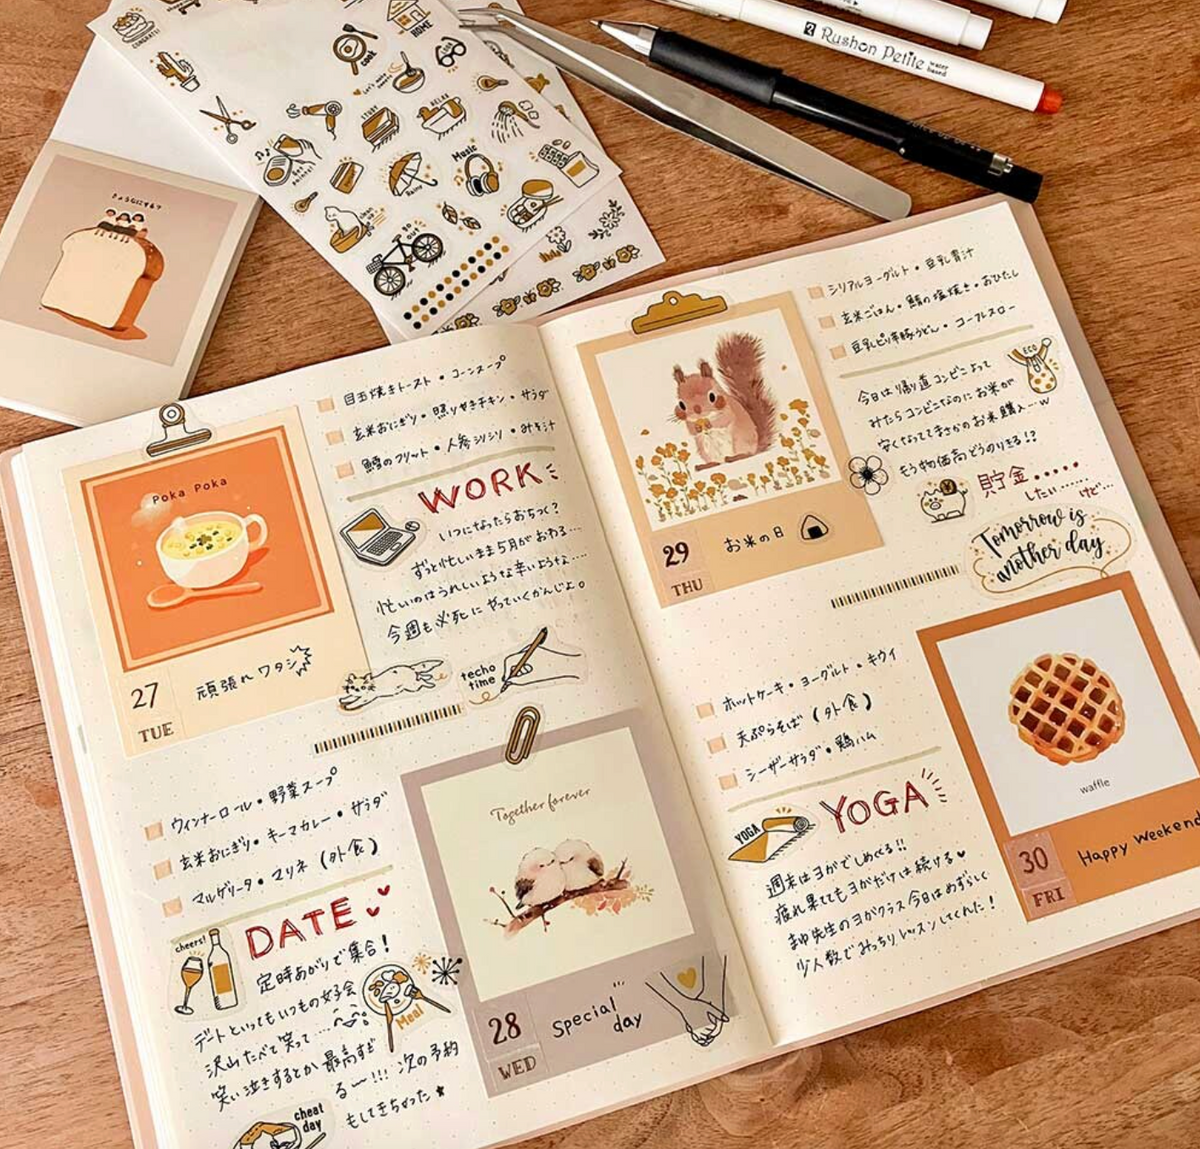 CONGRATS!
HOME
cook
STUDY
RELAX
Music
Rainy
clean up
GO OUT
Rushon Petite
water based
さようなにする?
Poka Poka
27
TUE
頑張れワタシ
目玉焼きトースト・コーンスープ
玄米おにぎり・照りやきチキン・サラダ
鱈のフリット・人参シリシリ・みそ汁
WORK
いつになったらおちつく?
ずっと忙しいまま5月がおわる…
忙しいのはうれしいような辛いような……
今週も必死にやっていくかんじよ。
techo time
ウィンナーロール・野菜スープ
玄米おにぎり・キーマカレー・サラダ
マルゲリータ・マリネ(外食)
DATE
cheers!
定時あがりで集合!
デートといってもいつもの女子会
沢山たべて笑って…
笑い泣きするとか最高すぎ
る〜!!! 次の予約
もしてきちゃった★
Meal
cheat day
Together forever
28
WED
Special day
29
THU
お米の日
シリアルヨーグルト・豆乳青汁
玄米ごはん・鯖の塩焼き・おひたし
豆乳ピリ辛豚うどん・コールスロー
ECO
今日は帰り道コンビニよって
みたらコンビニなのにお米が
安くなっててまさかのお米購入…w
もう物価高どうのりきる!?
貯金.....
したい…… けど…
Tomorrow is
another day
ホットケーキ・ヨーグルト・キウイ
天ぷらそば(外食)
シーザーサラダ・鶏ハム
YOGA
YOGA
週末はヨガでしめくくる!!
疲れ果ててもヨガだけは続ける♥
まゆ先生のヨガクラス今日はめずらしく
少人数でみっちりレッスンしてくれた!
waffle
30
FRI
Happy Weekend